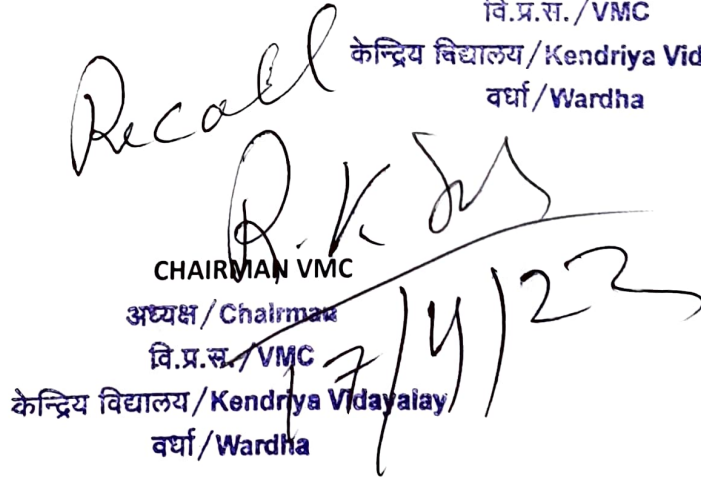 वि.प्र.स./VMC
केन्द्रिय विद्यालय/Kendriya Vid
वर्धा/Wardha
Recall
R.K.
CHAIRMAN VMC
17/4/22
अध्यक्ष/Chairman
वि.प्र.स./VMC
केन्द्रिय विद्यालय/Kendriya Vidayalay
वर्धा/Wardha